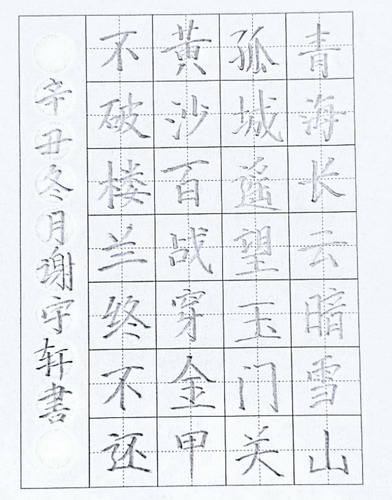 青海长云暗雪山
孤城遥望玉门关
黄沙百战穿金甲
不破楼兰终不还
辛丑冬月谢守轩書